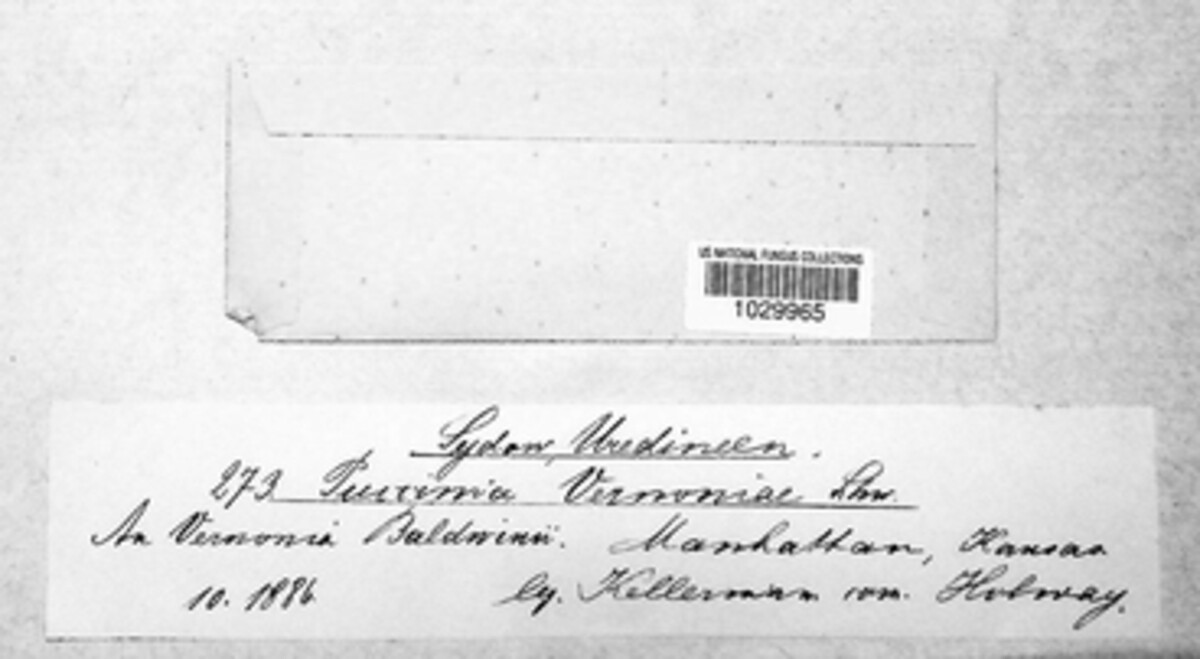 US NATIONAL FUNGUS COLLECTIONS
1029965
Sydow, Uredineen.
273 Puccinia Vernoniae Schw.
An Vernonia Baldwinii. Manhattan, Kansas
10. 1886 lg. Kellerman com. Holway.